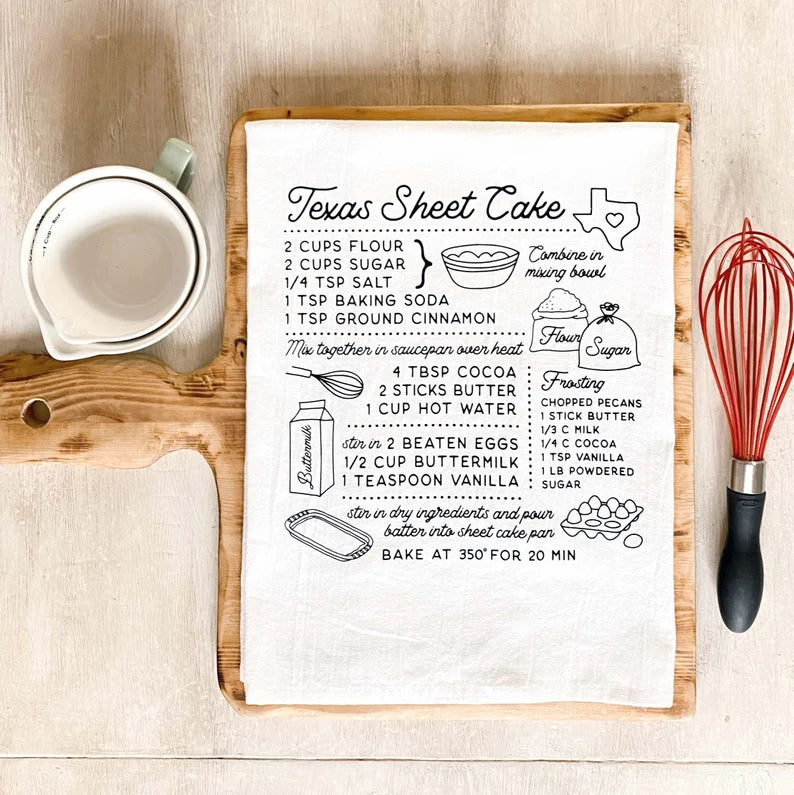 Texas Sheet Cake
2 CUPS FLOUR
2 CUPS SUGAR
1/4 TSP SALT
Combine in
mixing bowl
1 TSP BAKING SODA
1 TSP GROUND CINNAMON
Flour
Sugar
Mix together in saucepan over heat
4 TBSP COCOA
2 STICKS BUTTER
1 CUP HOT WATER
Buttermilk
stir in 2 BEATEN EGGS
1/2 CUP BUTTERMILK
1 TEASPOON VANILLA
Frosting
CHOPPED PECANS
1 STICK BUTTER
1/3 C MILK
1/4 C COCOA
1 TSP VANILLA
1 LB POWDERED
SUGAR
stir in dry ingredients and pour
batter into sheet cake pan
BAKE AT 350° FOR 20 MIN